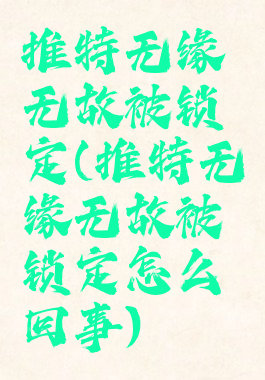 推特无缘
无故被锁
定(推特无
缘无故被
锁定怎么
回事)